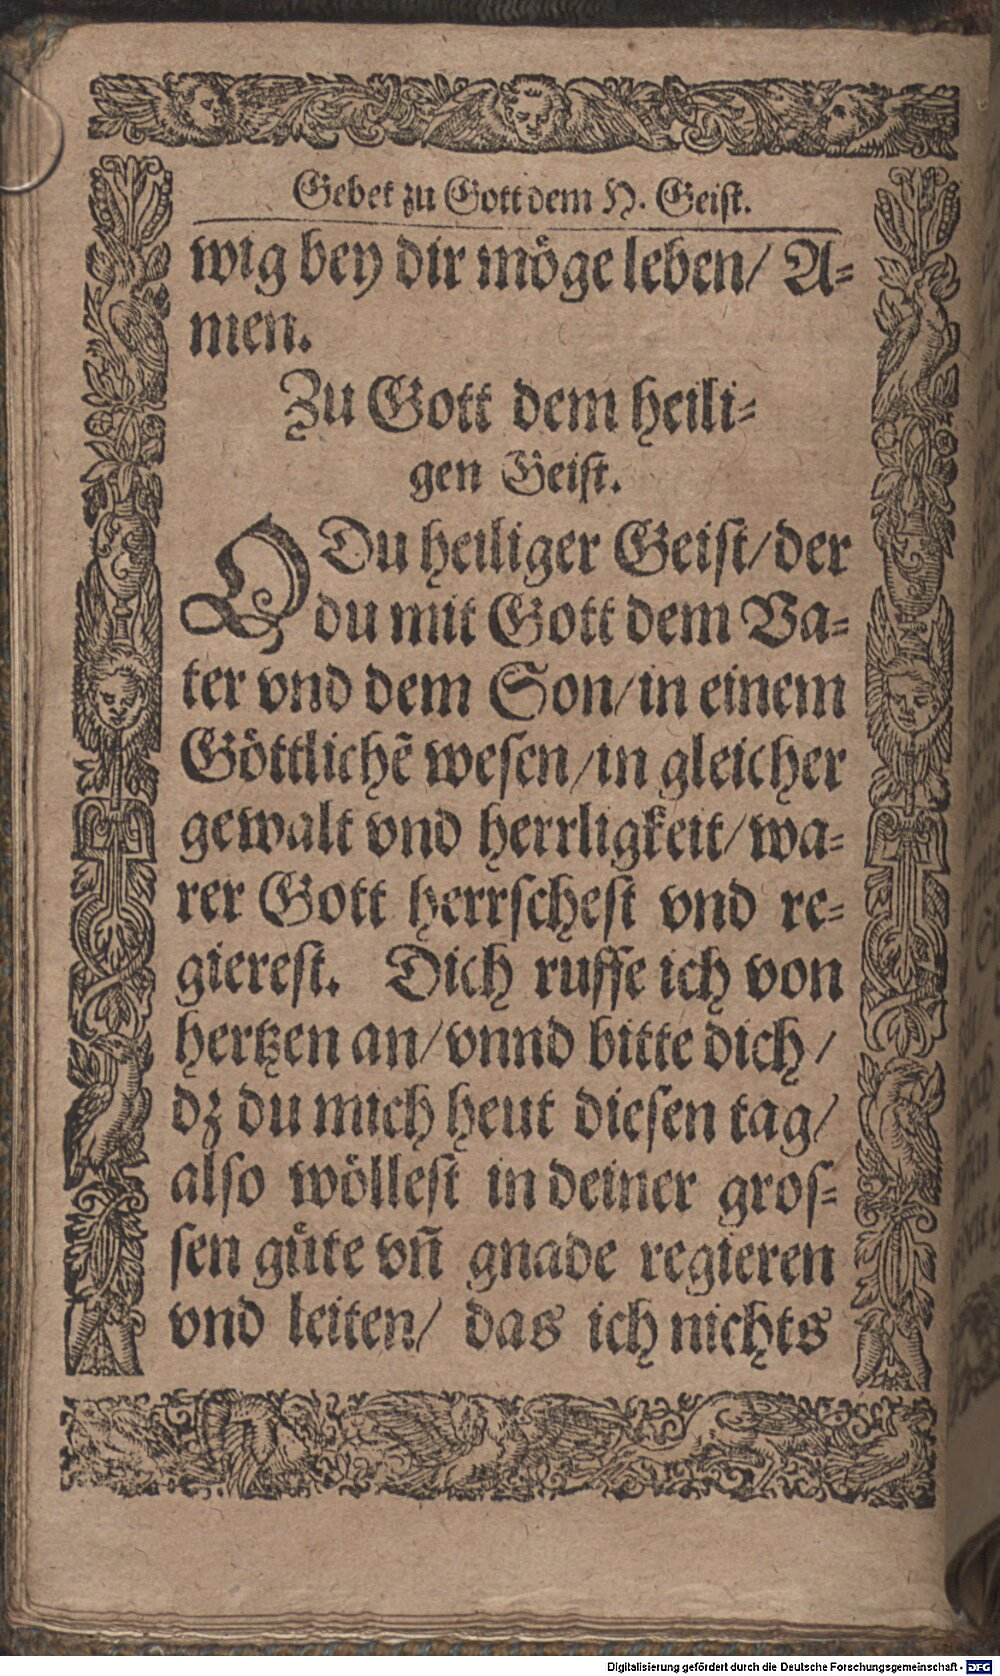 Gebet zu Gott dem H. Geist.
wig bey dir möge leben/ A⸗
men.
Zu Gott dem heili⸗
gen Geist.
O Du heiliger Geist/ der
du mit Gott dem Va⸗
ter vnd dem Son/ in einem
Göttlichẽ wesen/ in gleicher
gewalt vnd herrligkeit/ wa⸗
rer Gott herrschest vnd re⸗
gierest. Dich ruffe ich von
hertzen an/ vnnd bitte dich/
dz du mich heut diesen tag/
also wöllest in deiner gros⸗
sen güte vñ gnade regieren
vnd leiten/ das ich nichts
Digitalisierung gefördert durch die Deutsche Forschungsgemeinschaft - DFG